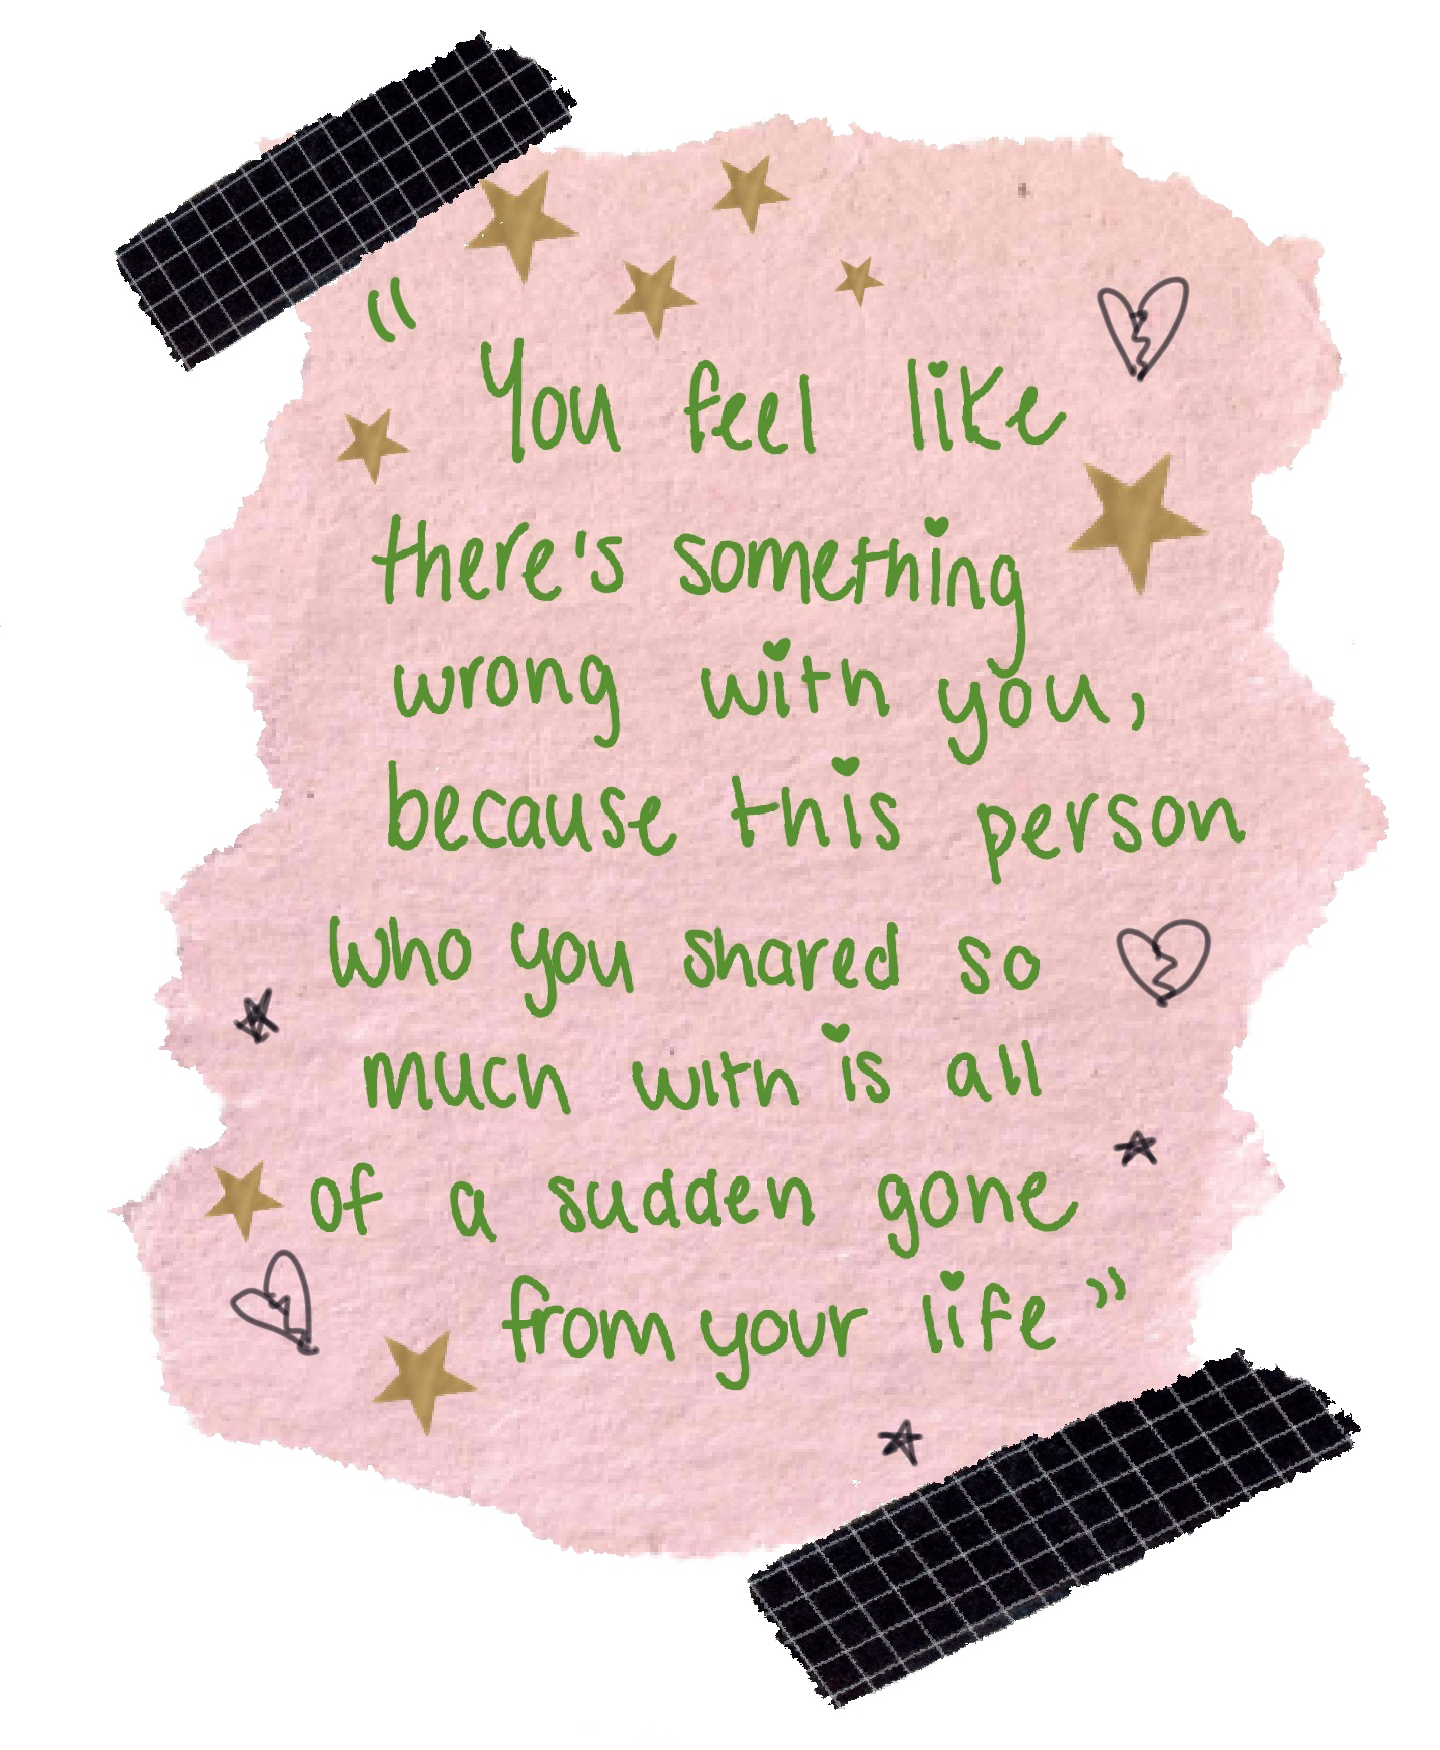 "You feel like
there's something
wrong with you,
because this person
who you shared so
much with is all
of a sudden gone
from your life"